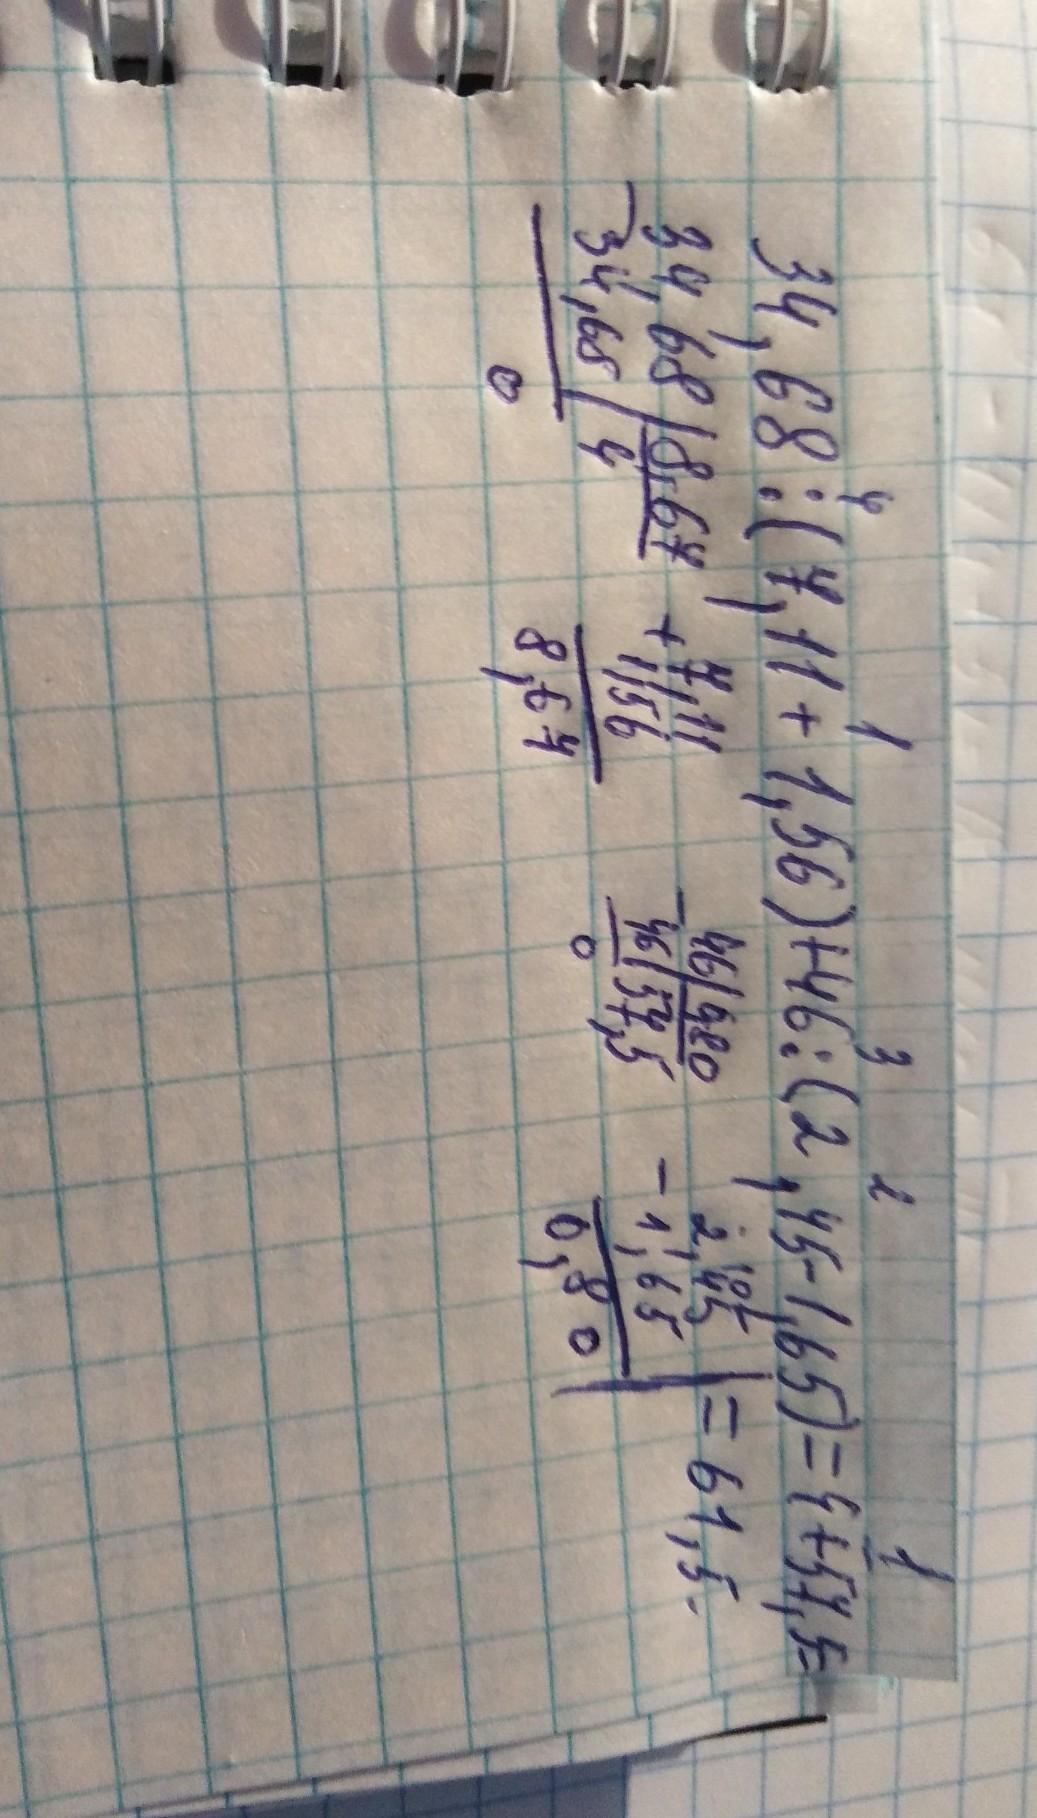 4 1 3 2 1
34,68:(7,11+1,56)+46:(2,45-1,65)=4+57,5=
34,68|8,67 7,11 46|0,80 2,45 =61,5.
-34,68|4 +1,56 -46|57,5 -1,65
0 8,67 0 0,80